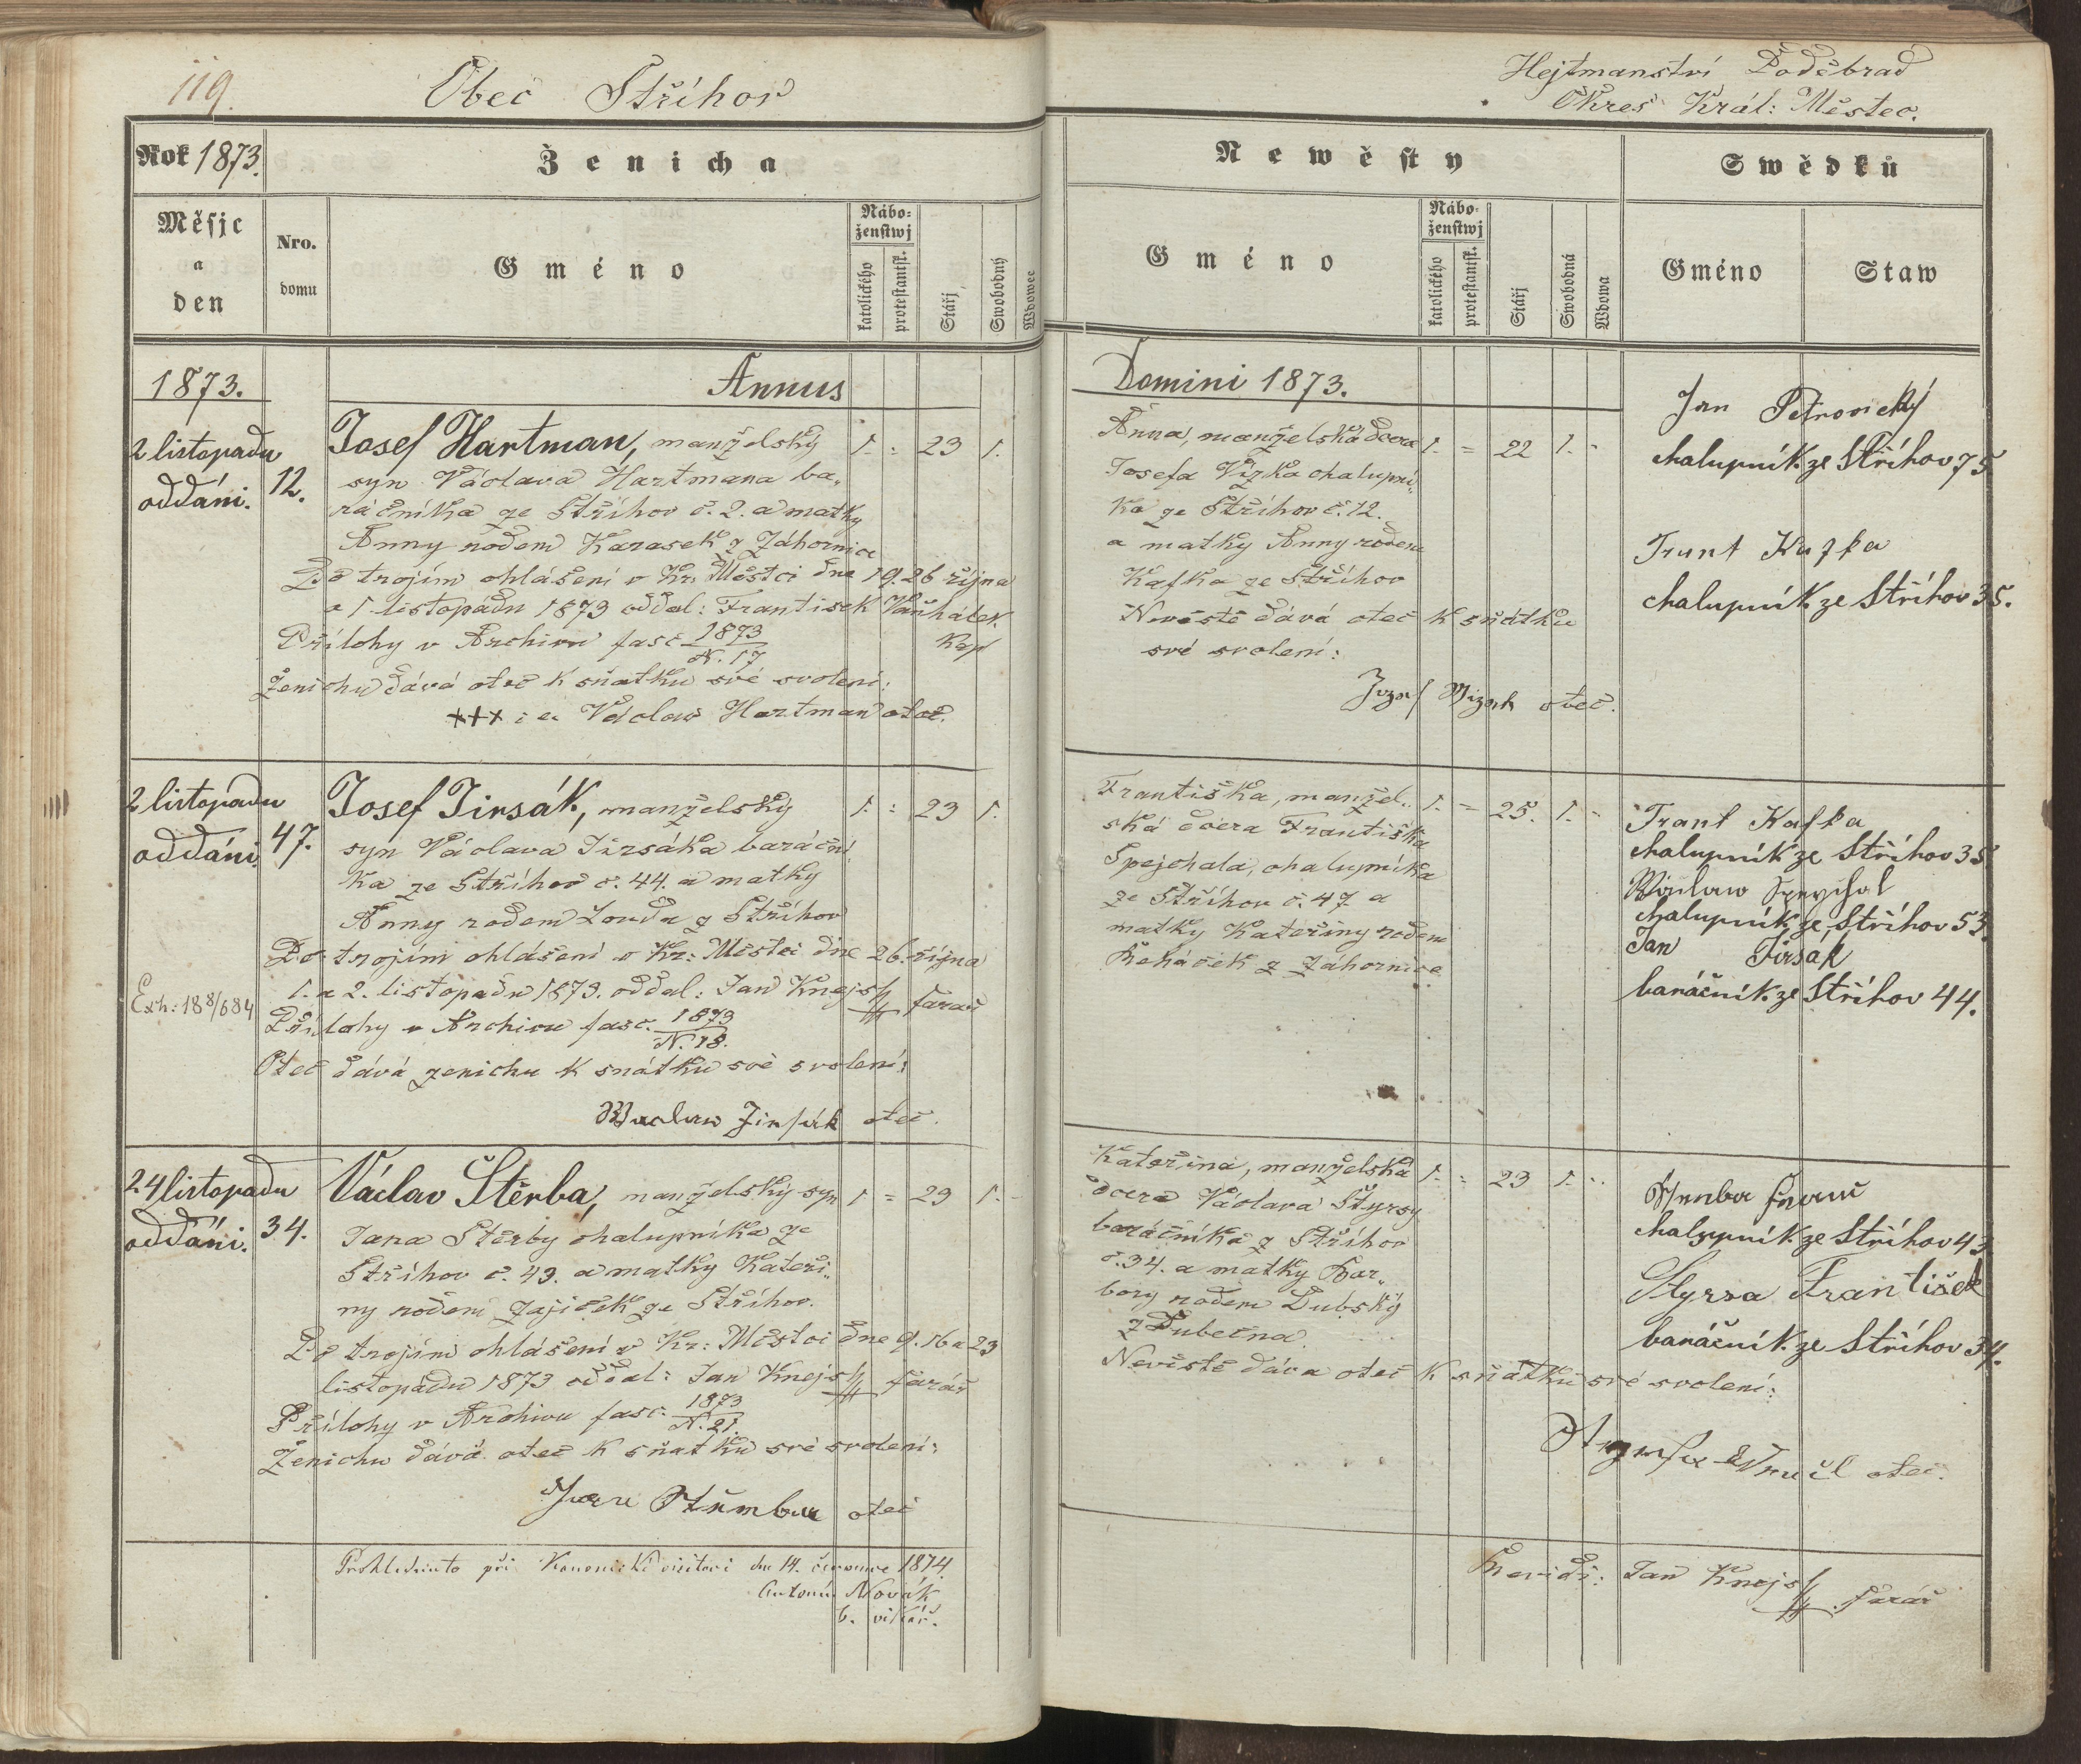 119.
Obec Střihov
Rok 1873.
Ženicha
Měsjc
a
den
Nro.
domu
Gméno
Nábo=
ženstwj
katolického
protestantsk.
Stářj
Swobodný
Wdowec
1873.
Annus
2 listopadu
oddáni.
12.
Josef Hartman, manželský 1. = 23 1.
syn Václava Hartmana ba„
ráčníka ze Střihov č. 2. a matky
Anny rodem Karasek z Záhornice
Po trojím ohlášení v Kr. Městci dne 19. 26 října
a 1 listopadu 1873 oddal: František Vaňhátek
Kap
Přílohy v Archivu fasc 1873
N. 17
Ženichu dává otec k sňatku své svolení:
+++ i e. Václav Hartman otec.
2 listopadu
oddáni.
47.
Josef Jirsák, manželský 1. = 23 1.
syn Václava Jirsáka baráční
ka ze Střihov č. 44. a matky
Anny rodem Louda z Střihov
Po trojím ohlášení v Kr: Městci dne 26. října
1. a 2. listopadu 1873. oddal: Jan Knejsl farář
Exh: 188/684
Přílohy v Archivu fasc. 1873
N. 18.
Otec dává ženichu k snátku své svolení:
Waclaw Jirsák otec.
24 listopadu
oddáni.
34.
Václav Štěrba, manželský syn 1 = 23 1. -
Jana Štěrby chalupníka ze
Střihov č. 43. a matky Kateři„
ny rodem Zajíček ze Střihov.
Po trojím ohlášení v Kr: Městci dne 9. 16 a 23
listopadu 1873 oddal: Jan Knejsl farář
Přílohy v Archivu fasc. 1873
N. 21.
Ženichu dává otec k sňatku své svolení:
otec
Prohlednuto při Kanonické visitaci dne 14. července 1874.
Antonín Novák
b. vikář.
Hejtmanství Poděbrad
Okres Král: Městec.
Newěsty
Swědků
Gméno
Nábo=
ženstwj
katolického
protestantsk.
Stářj
Swobodná
Wdowa
Gméno
Staw
Domini 1873.
Anna, manželská dcera 1. = 22 1. -
Josefa Vízka chalupní„
ka ze Střihov č. 12.
a matky Anny rodem
Kafka ze Střihov
Nevěstě dává otec k sňátku
své svolení:
Jozef Wizek otec.
Jan Petrovický
chalupník ze Střihov 75
Frant Kafka
chalupník ze Střihov 35.
Františka, manžel„ 1. = 25. 1. -
ská dcera Františka
Špejchala, chalupníka
ze Střihov č. 47 a
matky Kateřiny rodem
Řeháček z Záhornice
Frant Kafka
chalupník ze Střihov 35
Wáclaw Speychal
chalupník ze Střihov 53.
Jan Jirsák
baráčník ze Střihov 44.
Kateřina, manželská 1. = 23 1. -
dcera Václava Štyrsy
baráčníka z Střihov
č. 34. a matky Bar„
bory rodem Dubský
z Dubečna
Nevěstě dáva otec k sňátku své svolení:
otec.
chalupník ze Střihov 43
Styrsa František
baráčník ze Střihov 34.
Jan Knejsl farář